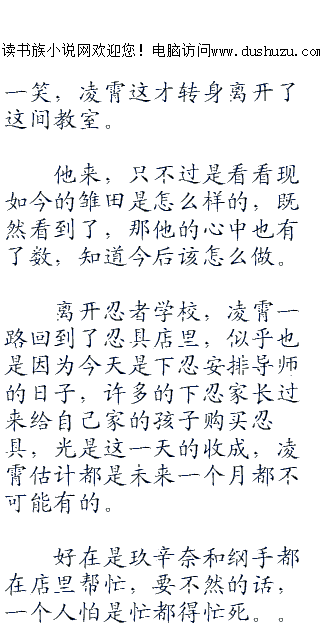 读书族小说网欢迎您！电脑访问www.dushuzu.com
一笑，凌霄这才转身离开了
这间教室。
他来，只不过是看看现
如今的雏田是怎么样的，既
然看到了，那他的心中也有
了数，知道今后该怎么做。
离开忍者学校，凌霄一
路回到了忍具店里，似乎也
是因为今天是下忍安排导师
的日子，许多的下忍家长过
来给自己家的孩子购买忍
具，光是这一天的收成，凌
霄估计都是未来一个月都不
可能有的。
好在是玖辛奈和纲手都
在店里帮忙，要不然的话，
一个人怕是忙都得忙死。。